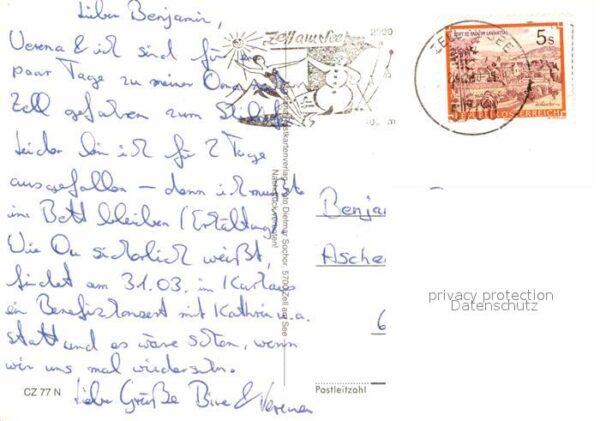 Lieber Benjamin,
Verena & ich sind für ein
paar Tage zu meiner Oma nach
Zell gefahren zum Skilaufen
Leider bin ich für 2 Tage
ausgefallen – denn ich musste
im Bett bleiben (Erkältung).
Wie Du sicherlich weißt,
findet am 31.03. im Kurhaus
ein Benefizkonzert mit Kathrin u.a.
statt und es wäre schön, wenn
wir uns mal wiedersehn.
Liebe Grüße Bine & Verena
CZ 77 N
Zell am See
2000
5s
STIFT ST. PAUL IM LAVANTTAL
REPUBLIK ÖSTERREICH
Foto Dietmar Sochor, 5700 Zell am See
Nachdruck verboten!
Benja
Asche
6
privacy protection
Datenschutz
Postleitzahl